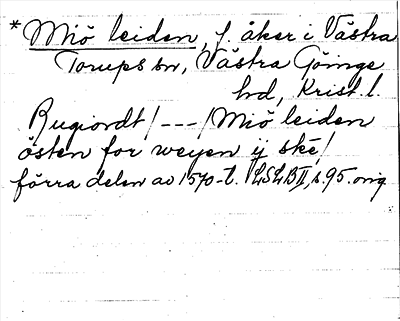 * Miö leiden, f. åker i Västra
Torups sn, Västra Göinge
hd, Krist. l.
Rugiordt /---/ Miö leiden
östen for weyen ij skē /
förra delen av 1570-t. LSLB II, s. 95. orig